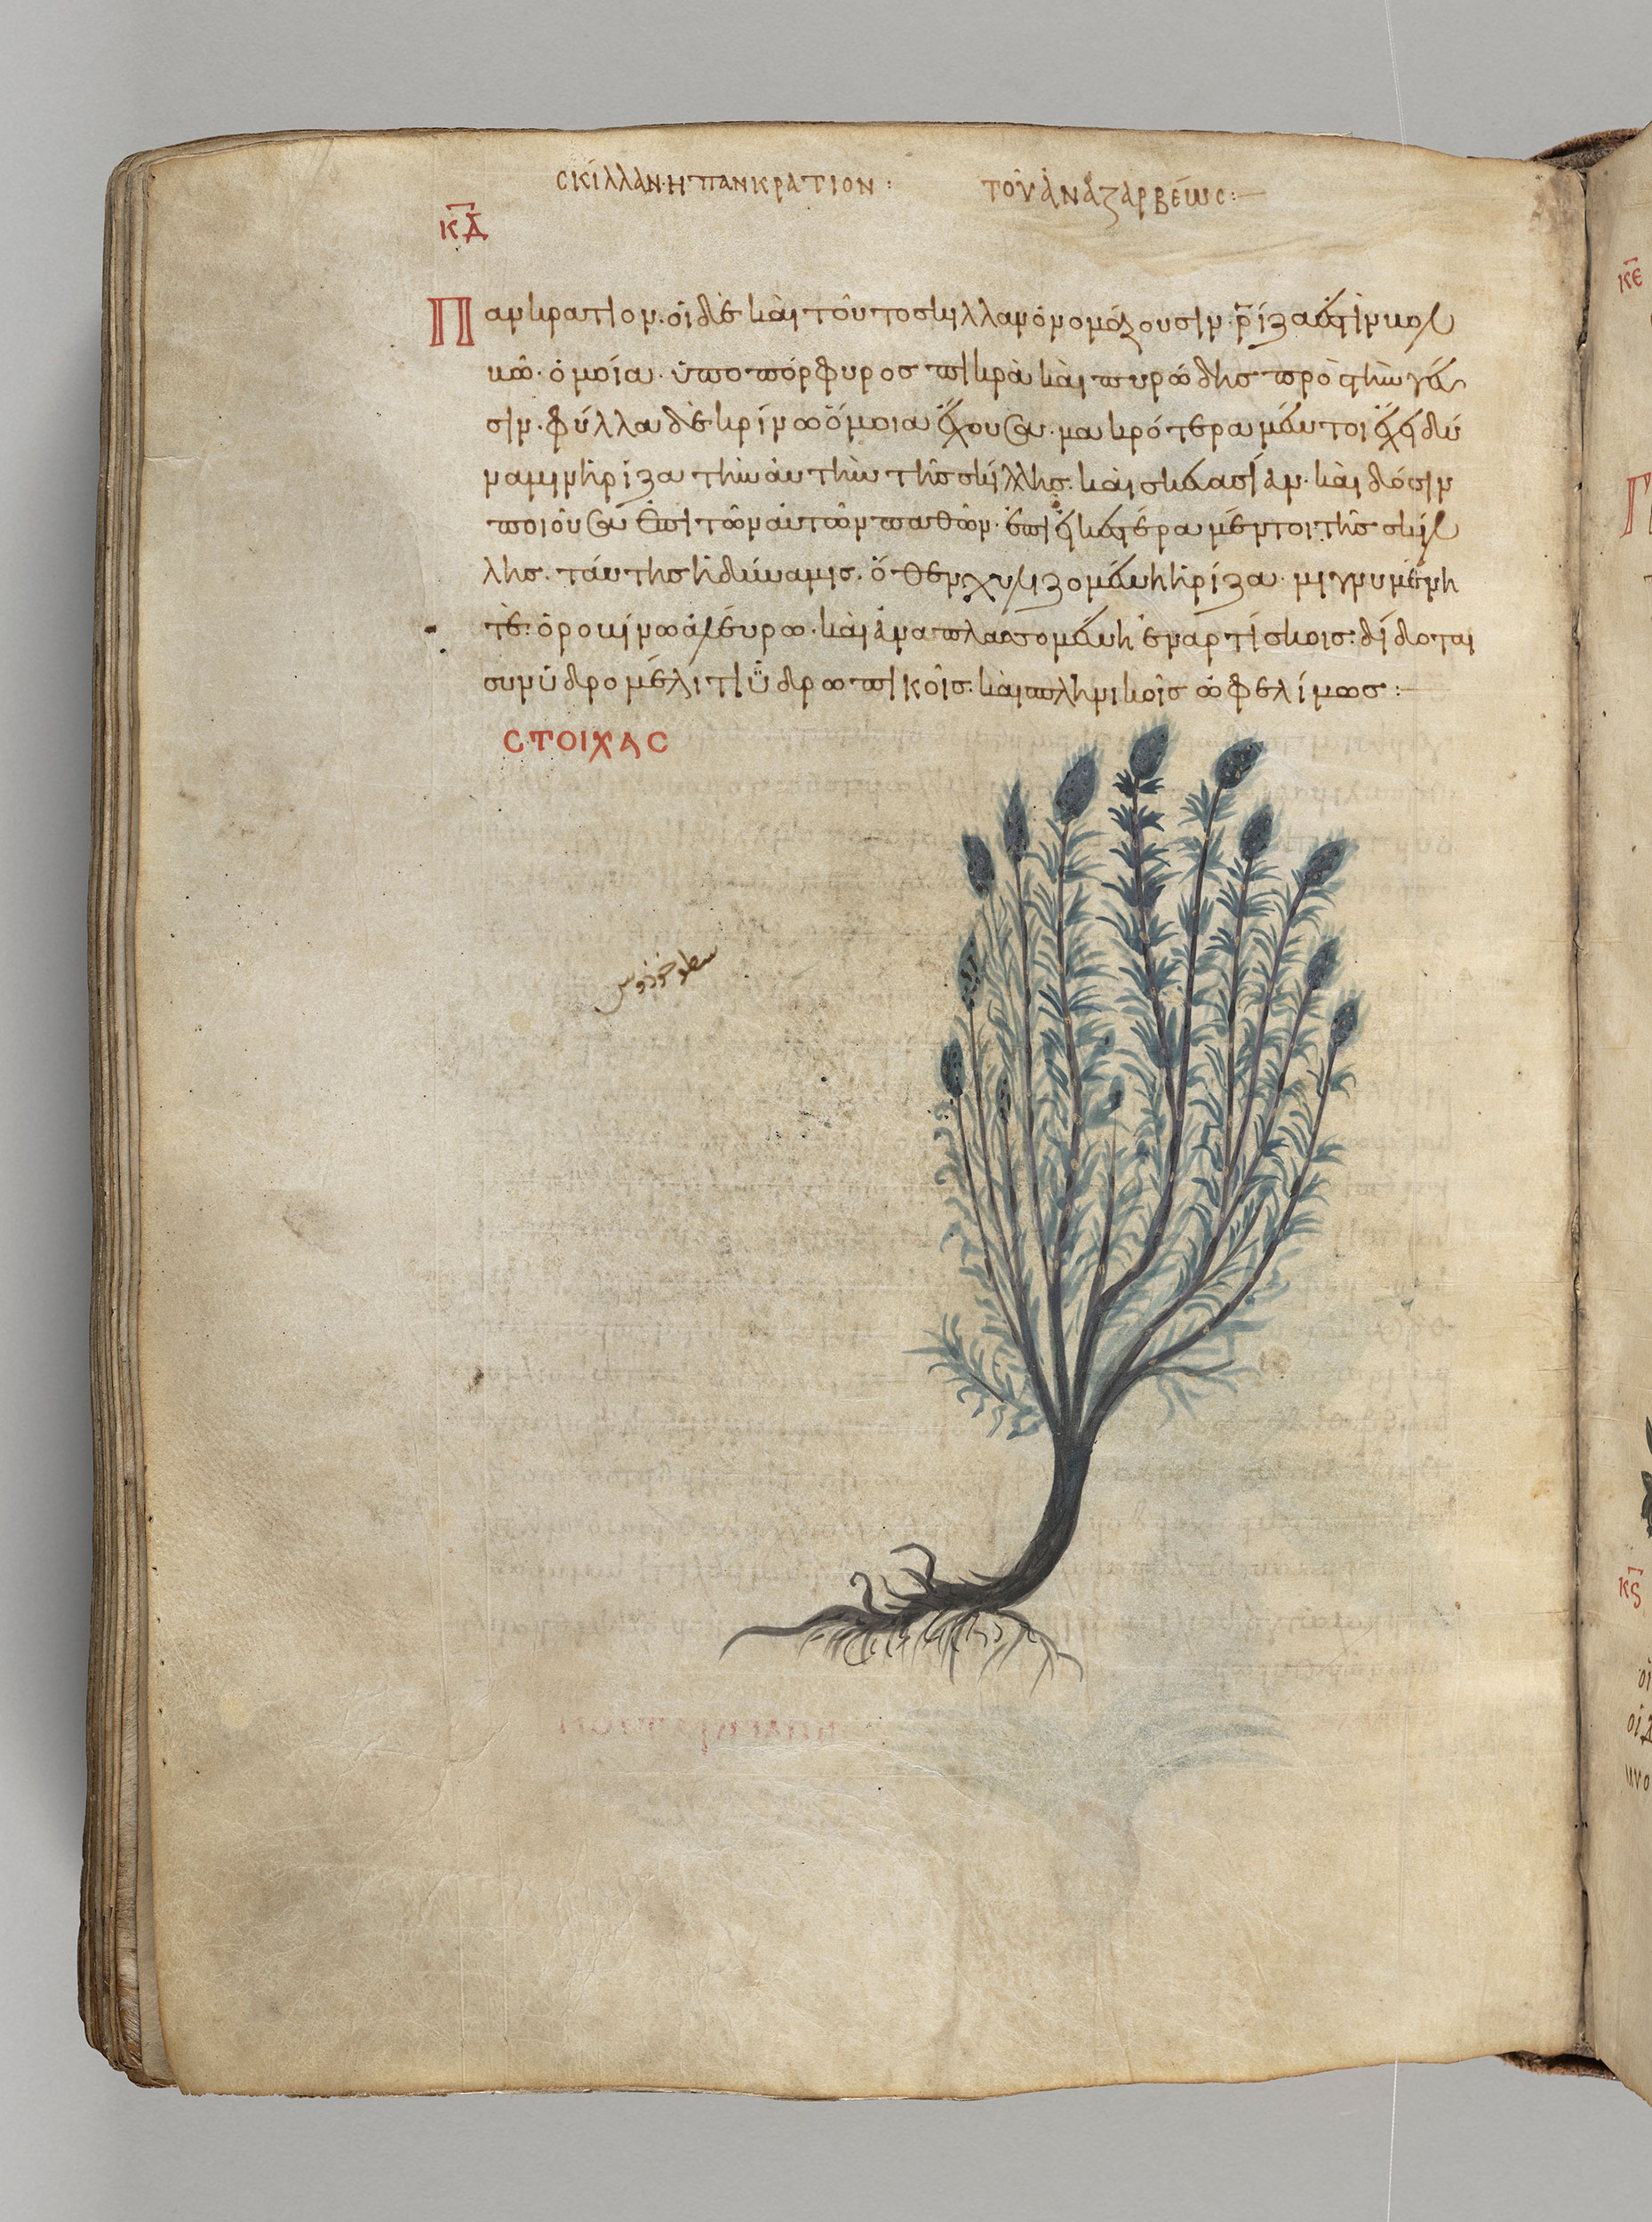 ϹΚΊΛΛΑΝ·Η ΠΑΝΚΡΑΤΙΟΝ : ΤΟΥ͂ ἈΝΑΖΑΡΒΈΩϹ :—
ΚΔ
Πανκράτιον· οἱ δὲ καὶ τοῦτο σκίλλαν ὀνομάζουσιν· ῥίζα ἐστὶν κολ
κῶ· ὁμοία· ὑποπόρφυρος πικρὰ καὶ πυρώδης πρὸς τὴν γεῦ
σιν· φύλλα δὲ κρίνω ὅμοια ἔχουσα· μακρότερα μέντοι ἔχει δύ
ναμιν ἡ ῥίζα τὴν αὐτὴν τῆς σκίλλης· καὶ σκευασίαν· καὶ δόσιν
ποιοῦσα ἐπὶ τῶν αὐτῶν παθῶν· ἐπιεικεστέρα μέντοι τῆς σκίλ
λης· ταύτης ἡ δύναμις· ὅθεν χυλιζομένη ἡ ῥίζα· μιγνυμένη
τὲ· ὀροκίνω ἀλεύρω· καὶ ἀναπλασσομένη ἐν ἀρτίσκοις· δίδοται
σὺν ὑδρομέλιτι ὑδρωπικοῖς· καὶ σπληνικοῖς ὠφελίμως :—
ϹΤΟΙΧΑϹ
ΚΕ
Κϛ